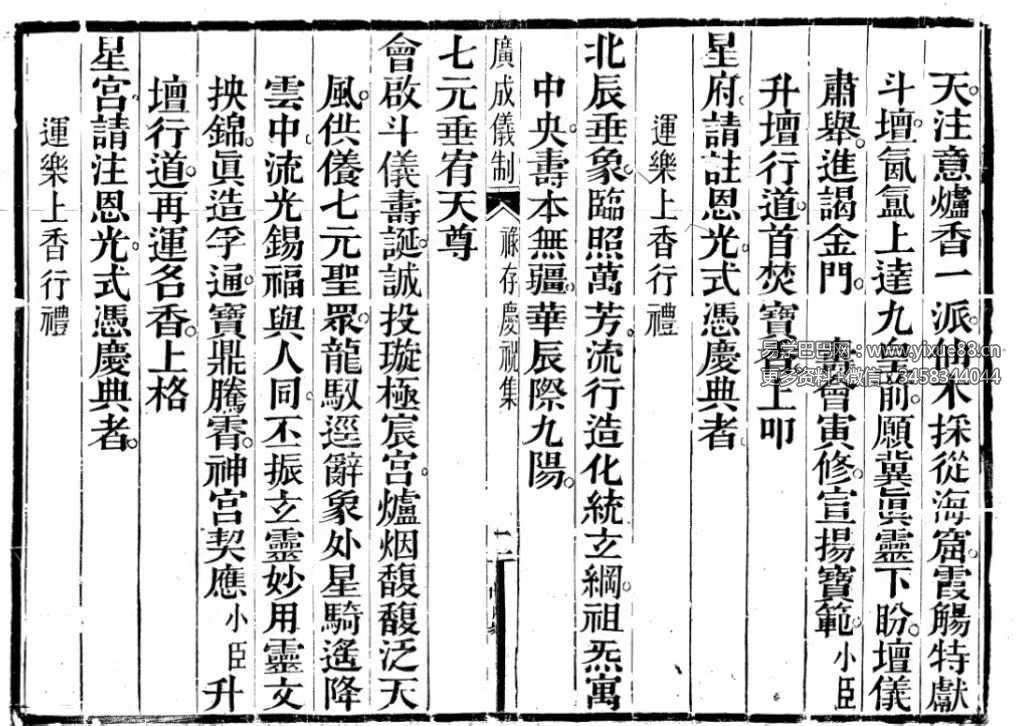 天注意爐香一派仙木採從海窟霞觴特獻
斗壇氤氳上達九皇前願冀眞靈下盼壇儀
肅舉進謁金門 會寅修宣揚寶範小臣
升壇行道首焚寶香上叩
星府請註恩光式憑慶典者
運樂上香行禮
北辰垂象臨照萬芳流行造化統玄綱祖炁寓
中央壽本無疆華辰際九陽
廣成儀制 祿存慶祝集 二
七元垂宥天尊
會啟斗儀壽誕誠投璇極宸宮爐烟馥馥泛天
風供儀七元聖眾龍馭逕辭象外星騎遙降
雲中流光錫福與人同丕振玄靈妙用靈文
抰錦眞造孚通寶鼎騰霄神宮契應小臣升
壇行道再運名香上格
星宮請注恩光式憑慶典者
運樂上香行禮
易学巴巴网：www.yixue88.cn
更多资料+微信：3458344044